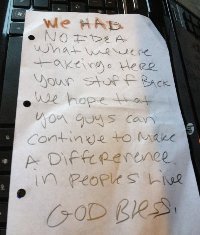 We HAD
NO IDEA
what we were
takeing. Here
your stuff Back
We hope that
you guys can
continue to Make
A Difference
in peoples Live
GOD Bless.